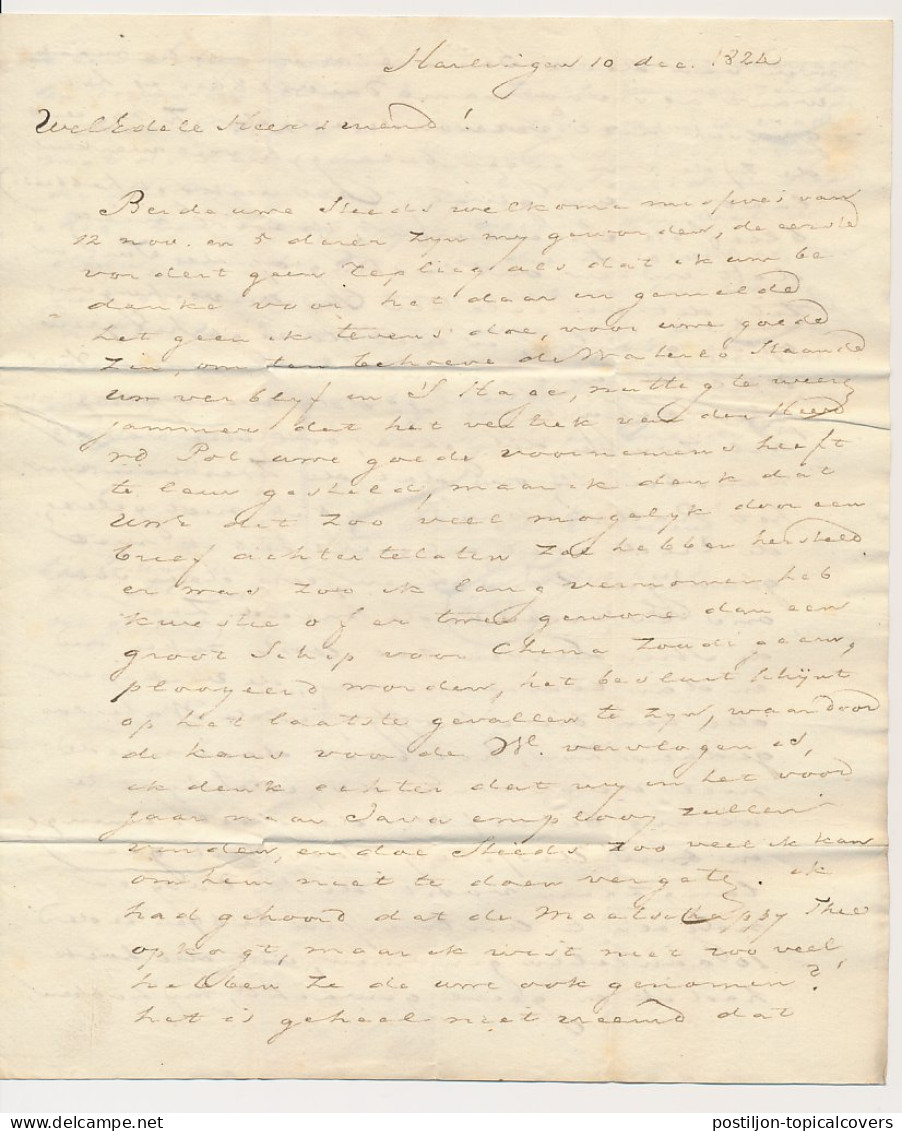 Harlingen 10 dec. 1824
WelEdele Heer & vriend!
Beide uwe steeds welkome missives van
12 nov. en 5 dezer zyn my geworden, de eerste
vordert geen repliq als dat ik um be
danke voor het daar in gemelde
het geen ik tevens doe, voor uwe goede
zin, om ten behoeve de Waterloo staande
um verblyf in 's Hage, nuttig te weezen
jammer dat het vertrek van den Heer
Pol uwe goede voornemens heeft
te leur gesteld, maar ik denk dat
UwE dit zoo veel mogelyk door een
brief achter te laten zal hebben hersteld
er was zoo ik lang vernomen heb
kwestie of er twee gewone dan een
groot schip voor China zoude geem
ployeerd worden, het besluit schynt
op het laatste gevallen te zyn, waardoor
de kans voor de W. vervlogen is,
ik denk echter dat wy in het voor
jaar naar Java emplooy zullen
vinden, en doe steeds zoo veel ik kan
om hem niet te doen vergeten. ik
had gehoord dat de Maatschappy Thee
opkogt, maar ik wist niet zoo veel
hebben ze de uwe ook genomen?
het is geheel niet vreemd dat
postiljon-topicalcovers